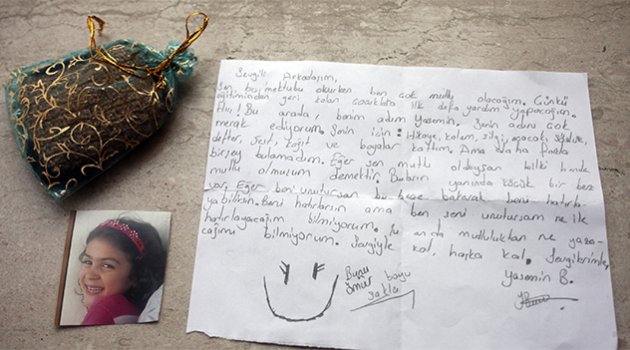 Sevgili Arkadaşım,
Sen bu mektubu okurken ben çok mutlu olacağım. Çünkü
eğitiminden geri kalan çocuklara ilk defa yardım yapacağım.
Bu arada, benim adım Yasemin. Senin adını çok
merak ediyorum. Senin için: Hikaye, kalem, silgi, açacak, sözlük,
defter, kağıt ve boyalar kattım. Ama daha fazla
birşey bulamadım. Eğer sen mutlu olduysan bilki bende
mutlu olmuşum demektir. Bunların yanında küçük bir bez
var. Eğer beni unutursan bu beze bakarak beni hatırla-
yabilirsin. Beni hatırlarsın ama ben seni unutursam ne ile
hatırlayacağım bilmiyorum. Şu anda mutluluktan ne yaza-
cağımı bilmiyorum. Sevgiyle kal, hoşka kal. Sevgilerimle,
Yasemin B.
Bunu
ömür boyu
sakla